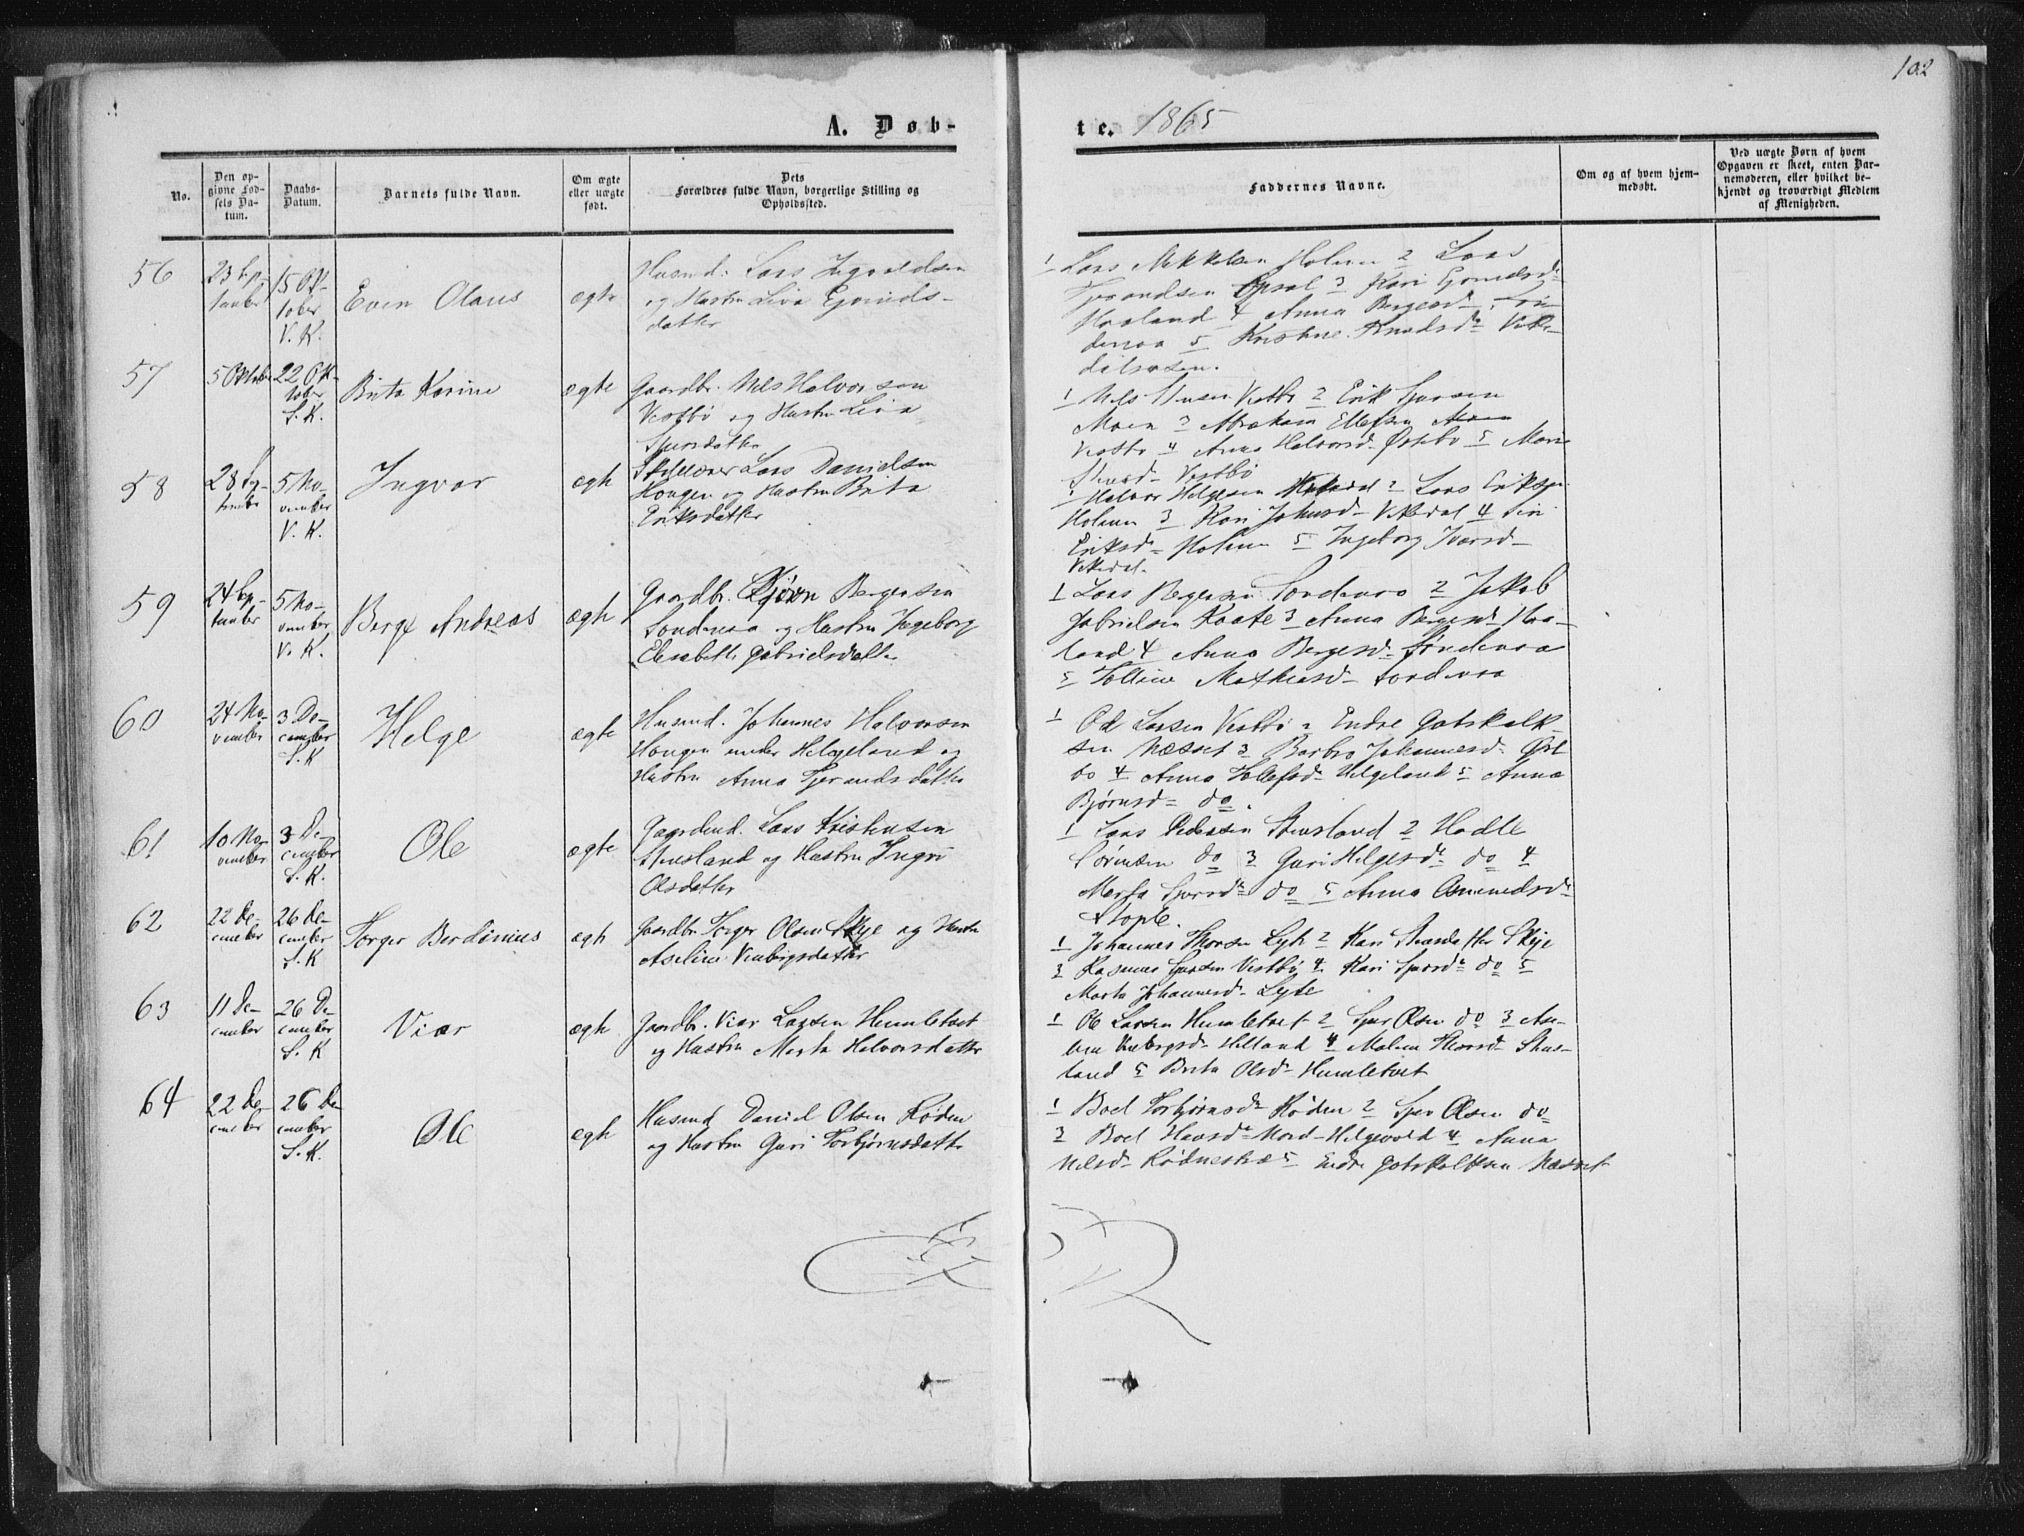 102
A. Døb-
te. 1865
No.
Den op-
givne Fød-
sels Da-
tum.
Daabs-
Datum.
Barnets fulde Navn.
Om ægte
eller uægte
født.
Dets
Forældres fulde Navn, borgerlige Stilling og
Opholdssted.
Faddernes Navne.
Om og af hvem hjem-
medøbt.
Ved uægte Børn af hvem
Opgaven er skeet, enten Bar-
nemoderen, eller hvilket be-
kjendt og troværdigt Medlem
af Menigheden.
56
23 Sep-
tember
15 Ok-
tober
V. K.
Even Olaus
ægte
Husmd. Lars Ingvaldsen
og Hustru Liva Ejvinds-
datter
1 Lars Mikkelsen Holmen 2 Lars
Tjerandsen Opsal 3 Kari Ejvindsd.
Haaland 4 Anna Bergesd. Søn-
denaa 5 Kristine Knudsd. Vike-
dalsosen.
57
5 Oktober
22 Ok-
tober
S. K.
Brita Karine
ægte
Gaardbr. Nils Halvorsen
Vestbø og Hustru Liva
Sjursdatter
1 Nils Vestbø 2 Erik
Moen 3 Abraham Ellefsen
Vestbø 4 Anna Halvorsd. Østebø 5
Vestbø
58
28 Sep-
tember
5 No-
vember
V. K.
Ingvar
ægte
Lars Danielsen
Haugen og Hustru Brita
Eriksdatter
1 Halvor Helgesen 2 Lars Eriksen
Holmen 3 Kari Johnsd. Vikedal 4
Eriksd. Holmen 5 Ingeborg Ivarsd.
Vikedal.
59
24 Sep-
tember
5 No-
vember
V. K.
Berge Andreas
ægte
Gaardbr. Bjørn Bergesen
Søndenaa og Hustru Ingeborg
Elisabeth Gabrielsdatter
1 Lars Bergesen Søndenaa 2 Jakob
Gabrielsen Kaate 3 Anna Bergesd. Haa-
land 4 Anna Bergesd. Søndenaa
5 Mathiasd. Søndenaa
60
24 No-
vember
3 De-
cember
S. K
Helge
ægte
Husmd. Johannes Halvorsen
Haugen under Helgeland og
Hustru Anna Tjerandsdatter
1 Od Larsen Vestbø 2 Endre Gotskalk-
sen Næsset 3 Barbro Johannesd. Øst-
bø 4 Anna Tollefsd. Helgeland 5 Anna
Bjørnsd. do.
61
10 No-
vember
3 De-
cember
S. K.
Ole
ægte
Gaardmd. Lars Kristensen
Stensland og Hustru Ingri
Olsdatter
1 Lars Pedersen Stensland 2 Hadle
Sørensen do 3 Guri Helgesd. do 4
Marta Sjursd. do 5 Anna Omundsd.
Stople.
62
22 De-
cember
26 De-
cember
S. K
Torger Berdinius
ægte
Gaardbr. Torger Olsen Skje og Hustru
Aseline Vinbjørsdatter
1 Johannes Lyte 2 Kari Skeie
3 Rasmus Sjursen Vestbø 4 Kari Sjursd. do 5
Marta Johannesd. Lyte
63
11 De-
cember
26 De-
cember
S. K
Viar
ægte
Gaardbr. Viar Larsen Humletvet
og Hustru Marta Halvorsdatter
1 Ole Larsen Humletvet 2 Sjur Olsen do 3 Ase-
line Helland 4 Malene Stens-
land 5 Brita Olsd. Humletvet
64
22 De-
cember
26 De-
cember
S. K.
Ole
ægte
Husmd Daniel Olsen Røden
og Hustru Guri Torbjørnsdatter
1 Boel Torbjørnsd. Røden 2 Sjur Olsen do
3 Boel Hansd. Nord-Helgevold 4 Anna
Nilsd. 5 Endre Gotskalksen Næsset